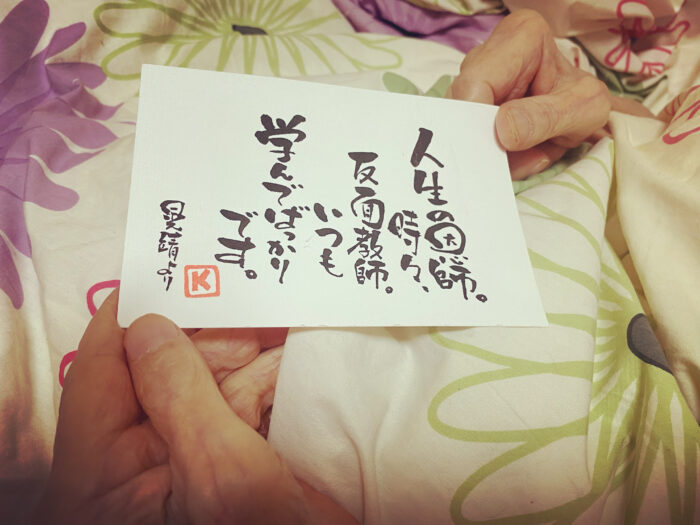 人生の恩師。
時々、
反面教師。
いつも
学んでばっかり
です。
晃靖より
K